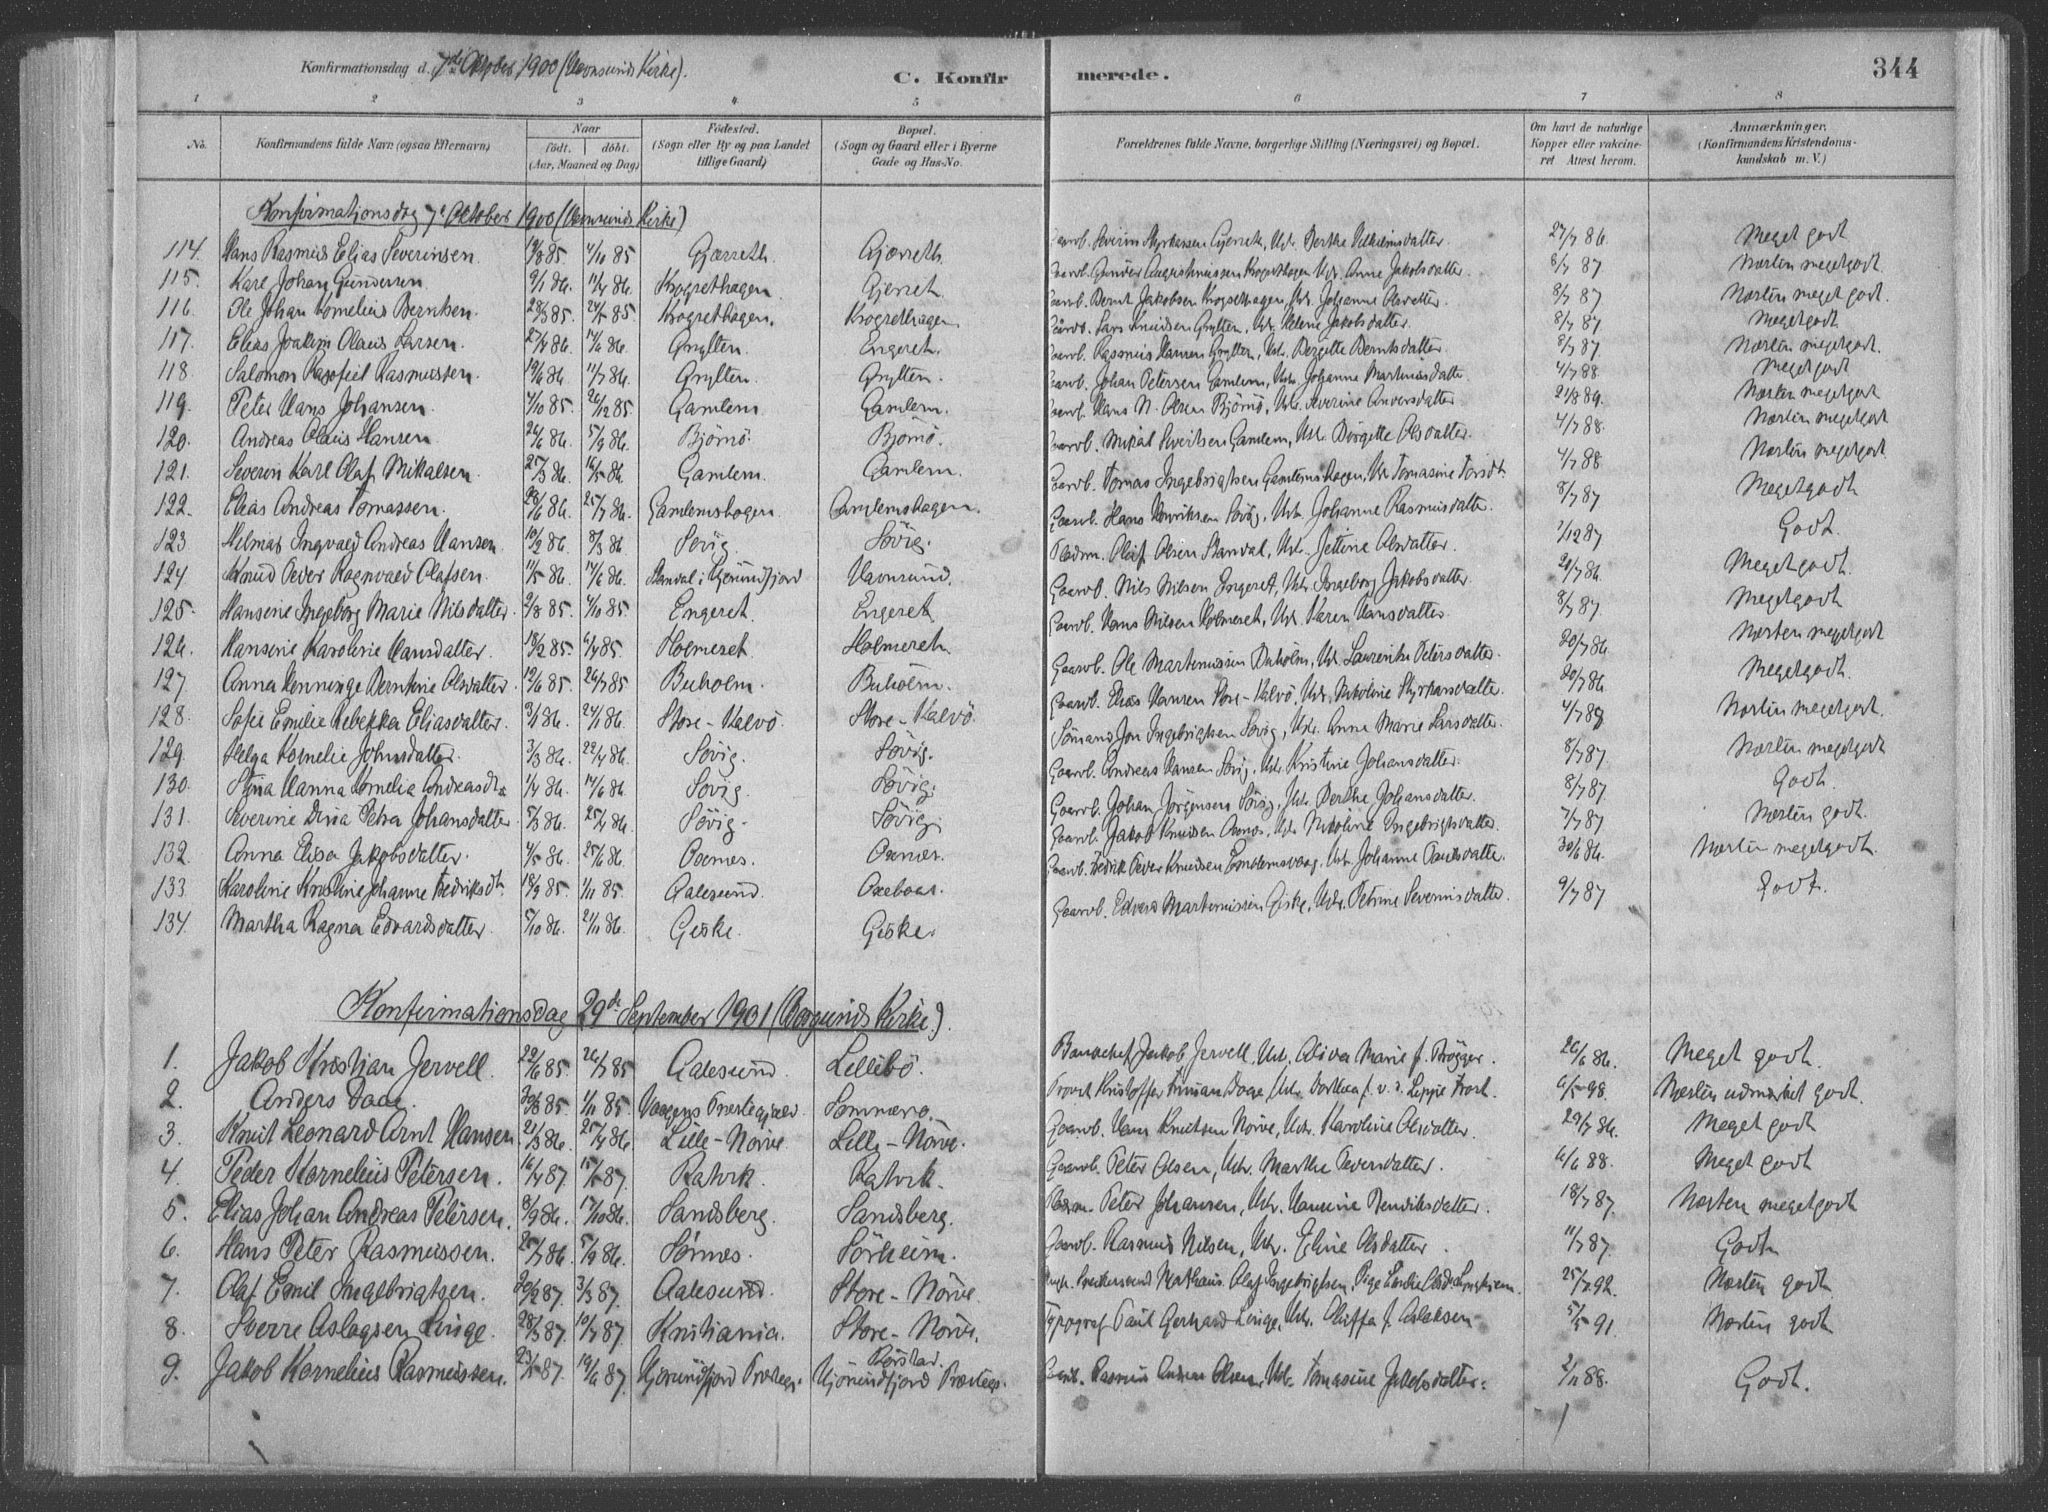 Konfirmationsdag d. 7de Oktober 1900 (Havnsunds Kirke). C. Konfirmerede. 344
1 2 3 4 5 6 7 8
No. Konfirmandens fulde Navn (ogsaa Efternavn) Naar født. døbt. (Aar, Maaned og Dag) Fødested. (Sogn eller By og paa Landet tillige Gaard) Bopæl. (Sogn og Gaard eller i Byerne Gade og Hus-No. Forældrenes fulde Navne, borgerlige Stilling (Næringsvei) og Bopæl. Om havt de naturlige Kopper eller vaccineret Attest herom. Anmærkninger. (Konfirmandens Kristendomskundskab m. V.)
Konfirmationsdag 7de Oktober 1900 (Havnsunds Kirke)
114. Hans Rasmus Elias Severinsen 85 4/10 85 Gjærreth Gjærreth Gaarb. Severin Styrkarsen Gjerreth, Hstr. Berthe Vilhelmsdatter 27/7 86. Meget godt
115. Karl Johan Gundersen 9/1 86. 11/4 86. Krogrethagen Gjerret. Gaarb. Gunder Krogrethagen Hstr. Anne Jakobsdatter 8/7 87 Næsten megetgodt.
116. Ole Johan Kornelius Berntsen. 28/3 85. 24/5 85 Krogrethagen. Krogrethagen Gaarb. Bernt Jakobsen Krogrethagen, Hstr. Johanne Olsdatter. 8/7 87 Næsten megetgodt.
117. Elias Joakim Olaus Larsen. 27/4 86. 14/6 86. Grytten. Engeret. Gaarb. Lars Knudsen Grytten, Hstr. Helene Jakobsdatter. 8/7 87 Megetgodt
118. Salomon Rasmussen 19/6 86 11/7 86. Grytten. Grytten. Gaarb. Rasmus Hansen Grytten, Hstr. Bergette Berntsdatter 8/7 87. Næsten megetgodt.
119. Peter Hans Johansen. 4/10 85. 26/12 85. Gamlem. Gamlem. Gaarb. Johan Petersen Gamlem, Hstr. Johanne Martinusdatter 4/7 88. Megetgodt
120. Andreas Olaus Hansen 26/6 86. 5/9 86. Bjørnø. Bjørnø. Gaarb. Hans N. Olsen Bjørnø, Hstr. Severine Andersdatter 21/8 89. Næsten megetgodt
121. Severin Karl Olaf Mikalsen. 25/3 86. 16/5 86. Gamlem. Gamlem. Gaarb. Mikal Sivertsen Gamlem, Hstr. Birgitte Olsdatter. 4/7 88. Næsten megetgodt
122. Elias Andreas Tomassen. 28/6 86. 25/7 86. Gamlemshagen. Gamlemshagen. Gaarb. Tomas Ingebrigtsen Gamlemshagen, Hstr Tomasine 4/7 88 Næsten megetgodt
123 Helmar Ingvald Andreas Hansen. 10/2 86. 8/3 86 Søvig. Søvig. Gaarb. Hans Henriksen Søvig, Hstr. Johanne Rasmusdatter. 8/7 87 Megetgodt
124. Knud Peder Ragnvald Olafsen. 11/5 86. 14/6 86. Standal i Hjørundfjord Havnsund. Pladsm. Olaf Olsen Standal, Hstr. Jettine Olsdatter. 1/12 87 Godt.
125. Hansine Ingeborg Marie Nilsdatter. 2/8 85. 4/10 85 Engeret. Engeret. Gaarb. Nils Nilsen Engeret, Hstr. Ingeborg Jakobsdatter 21/7 86. Megetgodt.
126. Hansine Karoline Hansdatter. 18/2 85. 6/4 85 Holmeret. Holmeret. Gaarb. Hans Nilsen Holmeret, Hstr. Karen Hansdatter 8/7 87 Megetgodt
127 Anna Henninge Berntine Olsdatter 19/6 85. 26/7 85 Buholm. Buholm. Gaarb. Ole Martinussen Buholm, Hstr. Laurentse Petersdatter. 20/7 86. Næsten megetgodt
128. Sofie Emilie Rebekka Eliasdatter. 9/1 86. 24/1 86. Store-Kalvø. Store-Kalvø. Gaarb. Elias Hansen Store-Kalvø, Hstr. Nikoline Styrkarsdatter. 20/7 86. Megetgodt.
129. Helga Kornelie Johnsdatter. 3/3 86. 22/4 86. Søvig. Søvig. Sømand Jon Ingebrigtsen Søvig, Hstr. Anne Marie Larsdatter. 4/7 88 Næsten megetgodt.
130. Stina Hanna Kornelia Andreasdtr 1/4 86. 14/6 86. Søvig. Søvig. Gaarb. Andreas Hansen Søvig, Hstr. Kristine Johansdatter. 8/7 87. Næsten megetgodt
131. Severine Dina Petra Johansdatter 5/3 86. 25/4 86. Søvig. Søvig. Gaarb. Johan Jørgensen Søvig, Hstr. Berthe Johansdatter. 8/7 87 Godt.
132. Anna Elisa Jakobsdatter. 4/5 86. 25/6 86. Oxnes. Oxnes. Gaarb. Jakob Knudsen Oxnes, Hstr. Nikoline Ingebrigtsdatter. 7/7 87 Næsten godt.
133 Karoline Kristine Johanne Fredriksdt. 18/9 85. 1/11 85. Aalesund. Gaarb. Fredrik Peder Knudsen Emblemsvaag, Hstr. Johanne Paulsdatter. 30/6 86. Næsten megetgodt.
134. Martha Ragna Edvardsdatter 5/10 86. 21/11 86. Giske. Giske. Gaarb. Edvard Martinussen Giske, Hstr. Petrine Severinsdatter. 9/7 87 Godt.
Konfirmationsdag 29de September 1901 (Borgunds Kirke.)
1. Jakob Kristian Jervell. 22/6 85. 26/7 85 Aalesund. Lillebø. Bankchef Jakob Jervell. Hstr. Marie f. Brøgger. 26/6 86. Meget godt.
2. Anders Daae. 30/8 85 1/11 85 Vaagens Præstegjeld Provst Kristoffer Daae, Hstr. f. v. d. Lippe Frost. 6/5 98. Næsten udmærket godt.
3. Knut Leonard Arnt Hansen 21/3 86. 25/4 86. Lille-Nørve Lille-Nørve. Gaarb. Hans Knutsen Nørve, Hstr. Karoline Olsdatter. 29/7 86. Meget godt
4. Peder Kornelius Petersen. 16/4 87. 15/5 87. Ratvik. Ratvik. Gaarb. Peter Olsen, Hstr. Marthe Pedersdatter. 6/6 88. Meget godt
5. Elias Johan Andreas Petersen. 8/9 86. 17/10 86. Sandsberg. Sandsberg. Pladsm. Peter Johansen, Hstr. Hansine Hendriksdatter. 18/7 87. Næsten megetgodt
6. Hans Peter Rasmussen. 25/7 86. 5/9 86. Sørnes. Sørheim. Gaarb. Rasmus Nilsen, Hstr. Eline Olsdatter. 11/7 87. Godt
7. Olaf Emil Ingebrigtsen. 20/2 87. 3/3 87. Aalesund Store-Nørve Mathias Olaf Ingebrigtsen, Pige 25/7 92. Næsten godt.
8. Sverre Aslagsen Linge. 28/3 87. 10/7 87 Kristiania. Store-Nørve. Typograf Paul Gerhard Linge, Hstr. Oluffa f. Aslaksen 5/5 91. Næsten godt
9. Jakob Kornelius Rasmussen. 23/5 87. 19/6 87. Hjørundfjord Præsteg. Rørstad. Hjørundfjord Præsteg. Rasmus Andreas Olsen Hstr. Tomasine Jakobsdatter. 2/11 88. Godt.